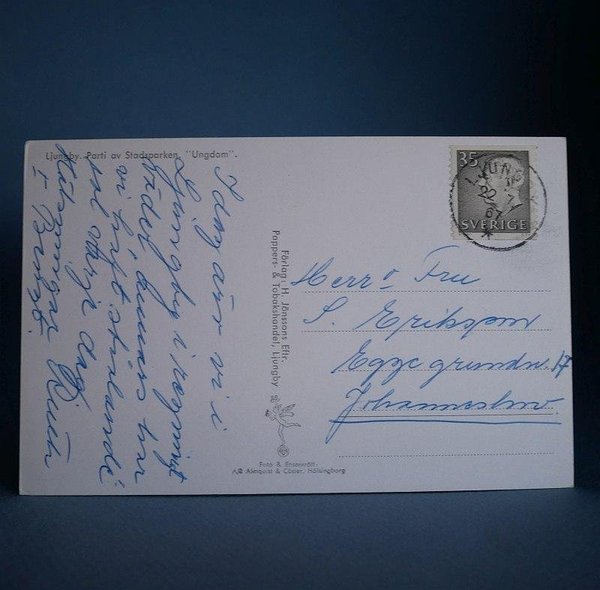 Ljungby. Parti av Stadsparken. "Ungdom".
I dag är vi i
Ljungby i regnigt
väder, annars har
vi haft strålande
sol varje dag
Hälsningar Ruth
o Bengt.
Förlag: H. Jönssons Eftr.
Pappers- & Tobakshandel, Ljungby
Foto & Ensamrätt:
A/B Almquist & Cöster, Hälsingborg
35
SVERIGE
LJUNGBY
67
Herr o Fru
S. Erikson
17
Johanneshov